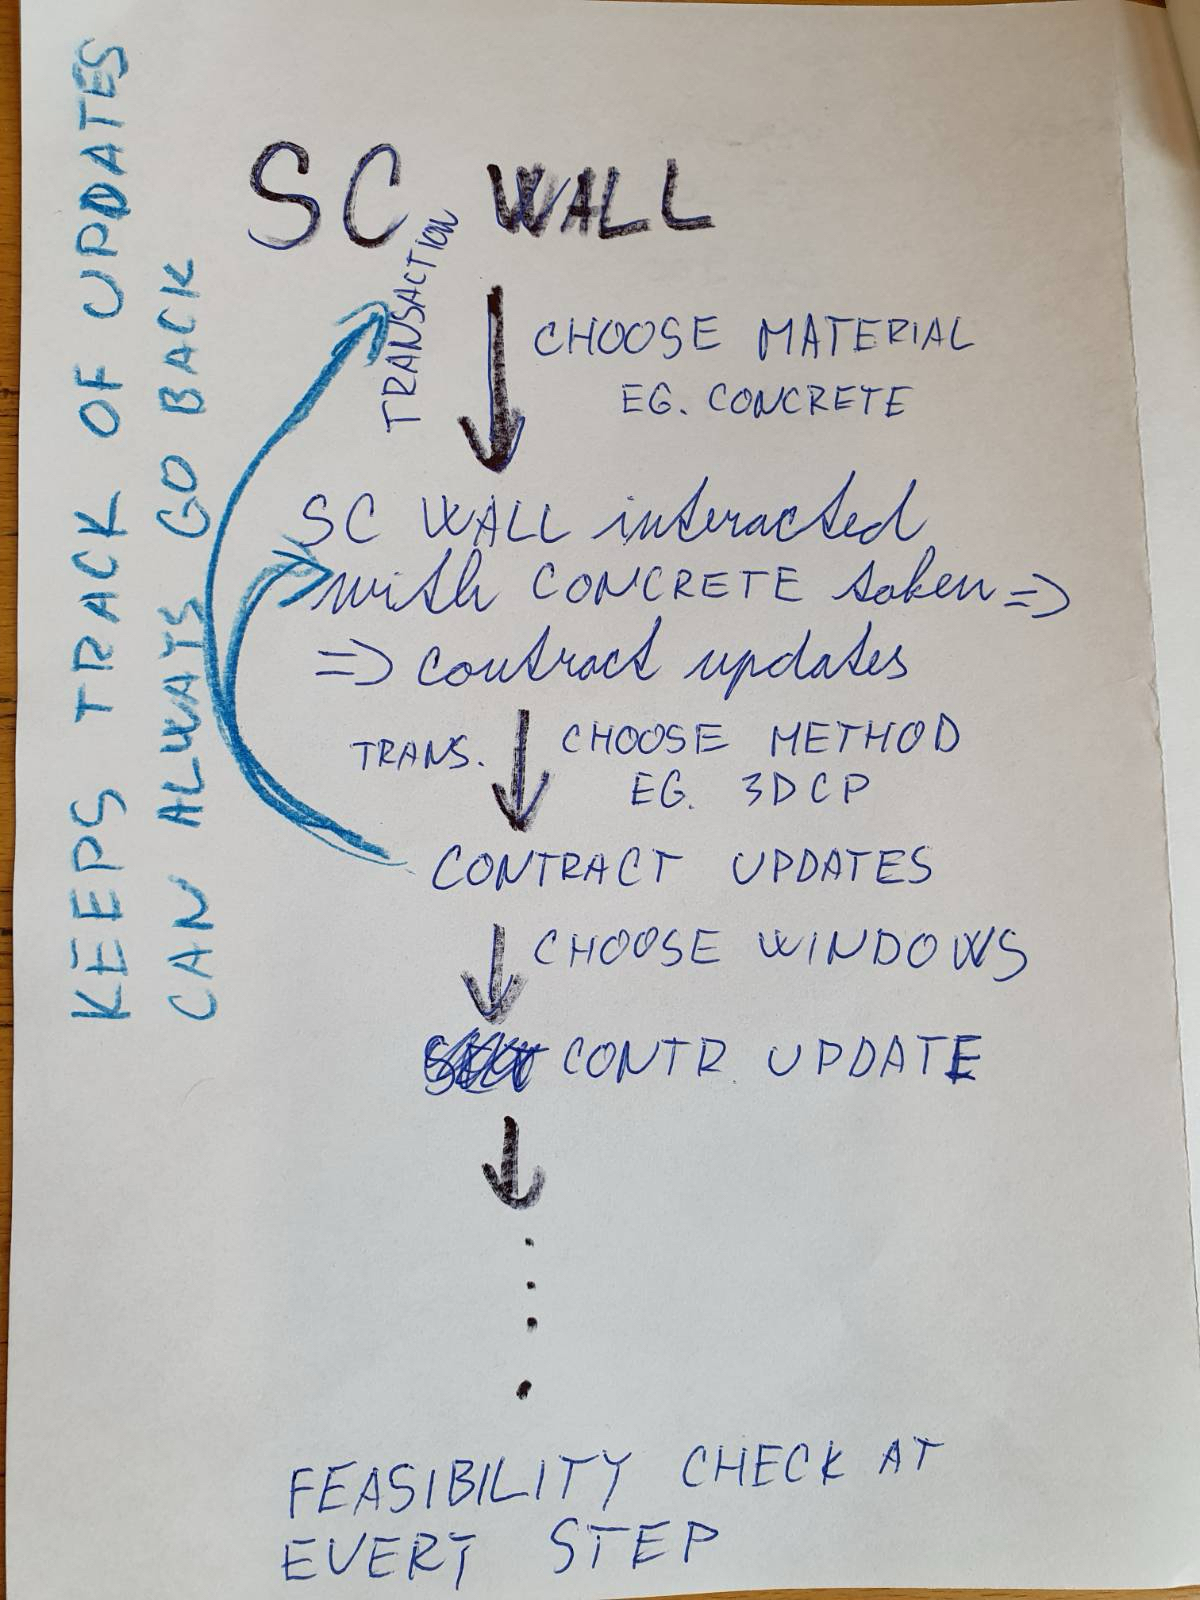 KEEPS TRACK OF UPDATES
CAN ALWAYS GO BACK
SC WALL
TRANSACTION
CHOOSE MATERIAL
EG. CONCRETE
SC WALL interacted
with CONCRETE token =>
=> contract updates
TRANS.
CHOOSE METHOD
EG. 3DCP
CONTRACT UPDATES
CHOOSE WINDOWS
CONTR. UPDATE
FEASIBILITY CHECK AT
EVERY STEP